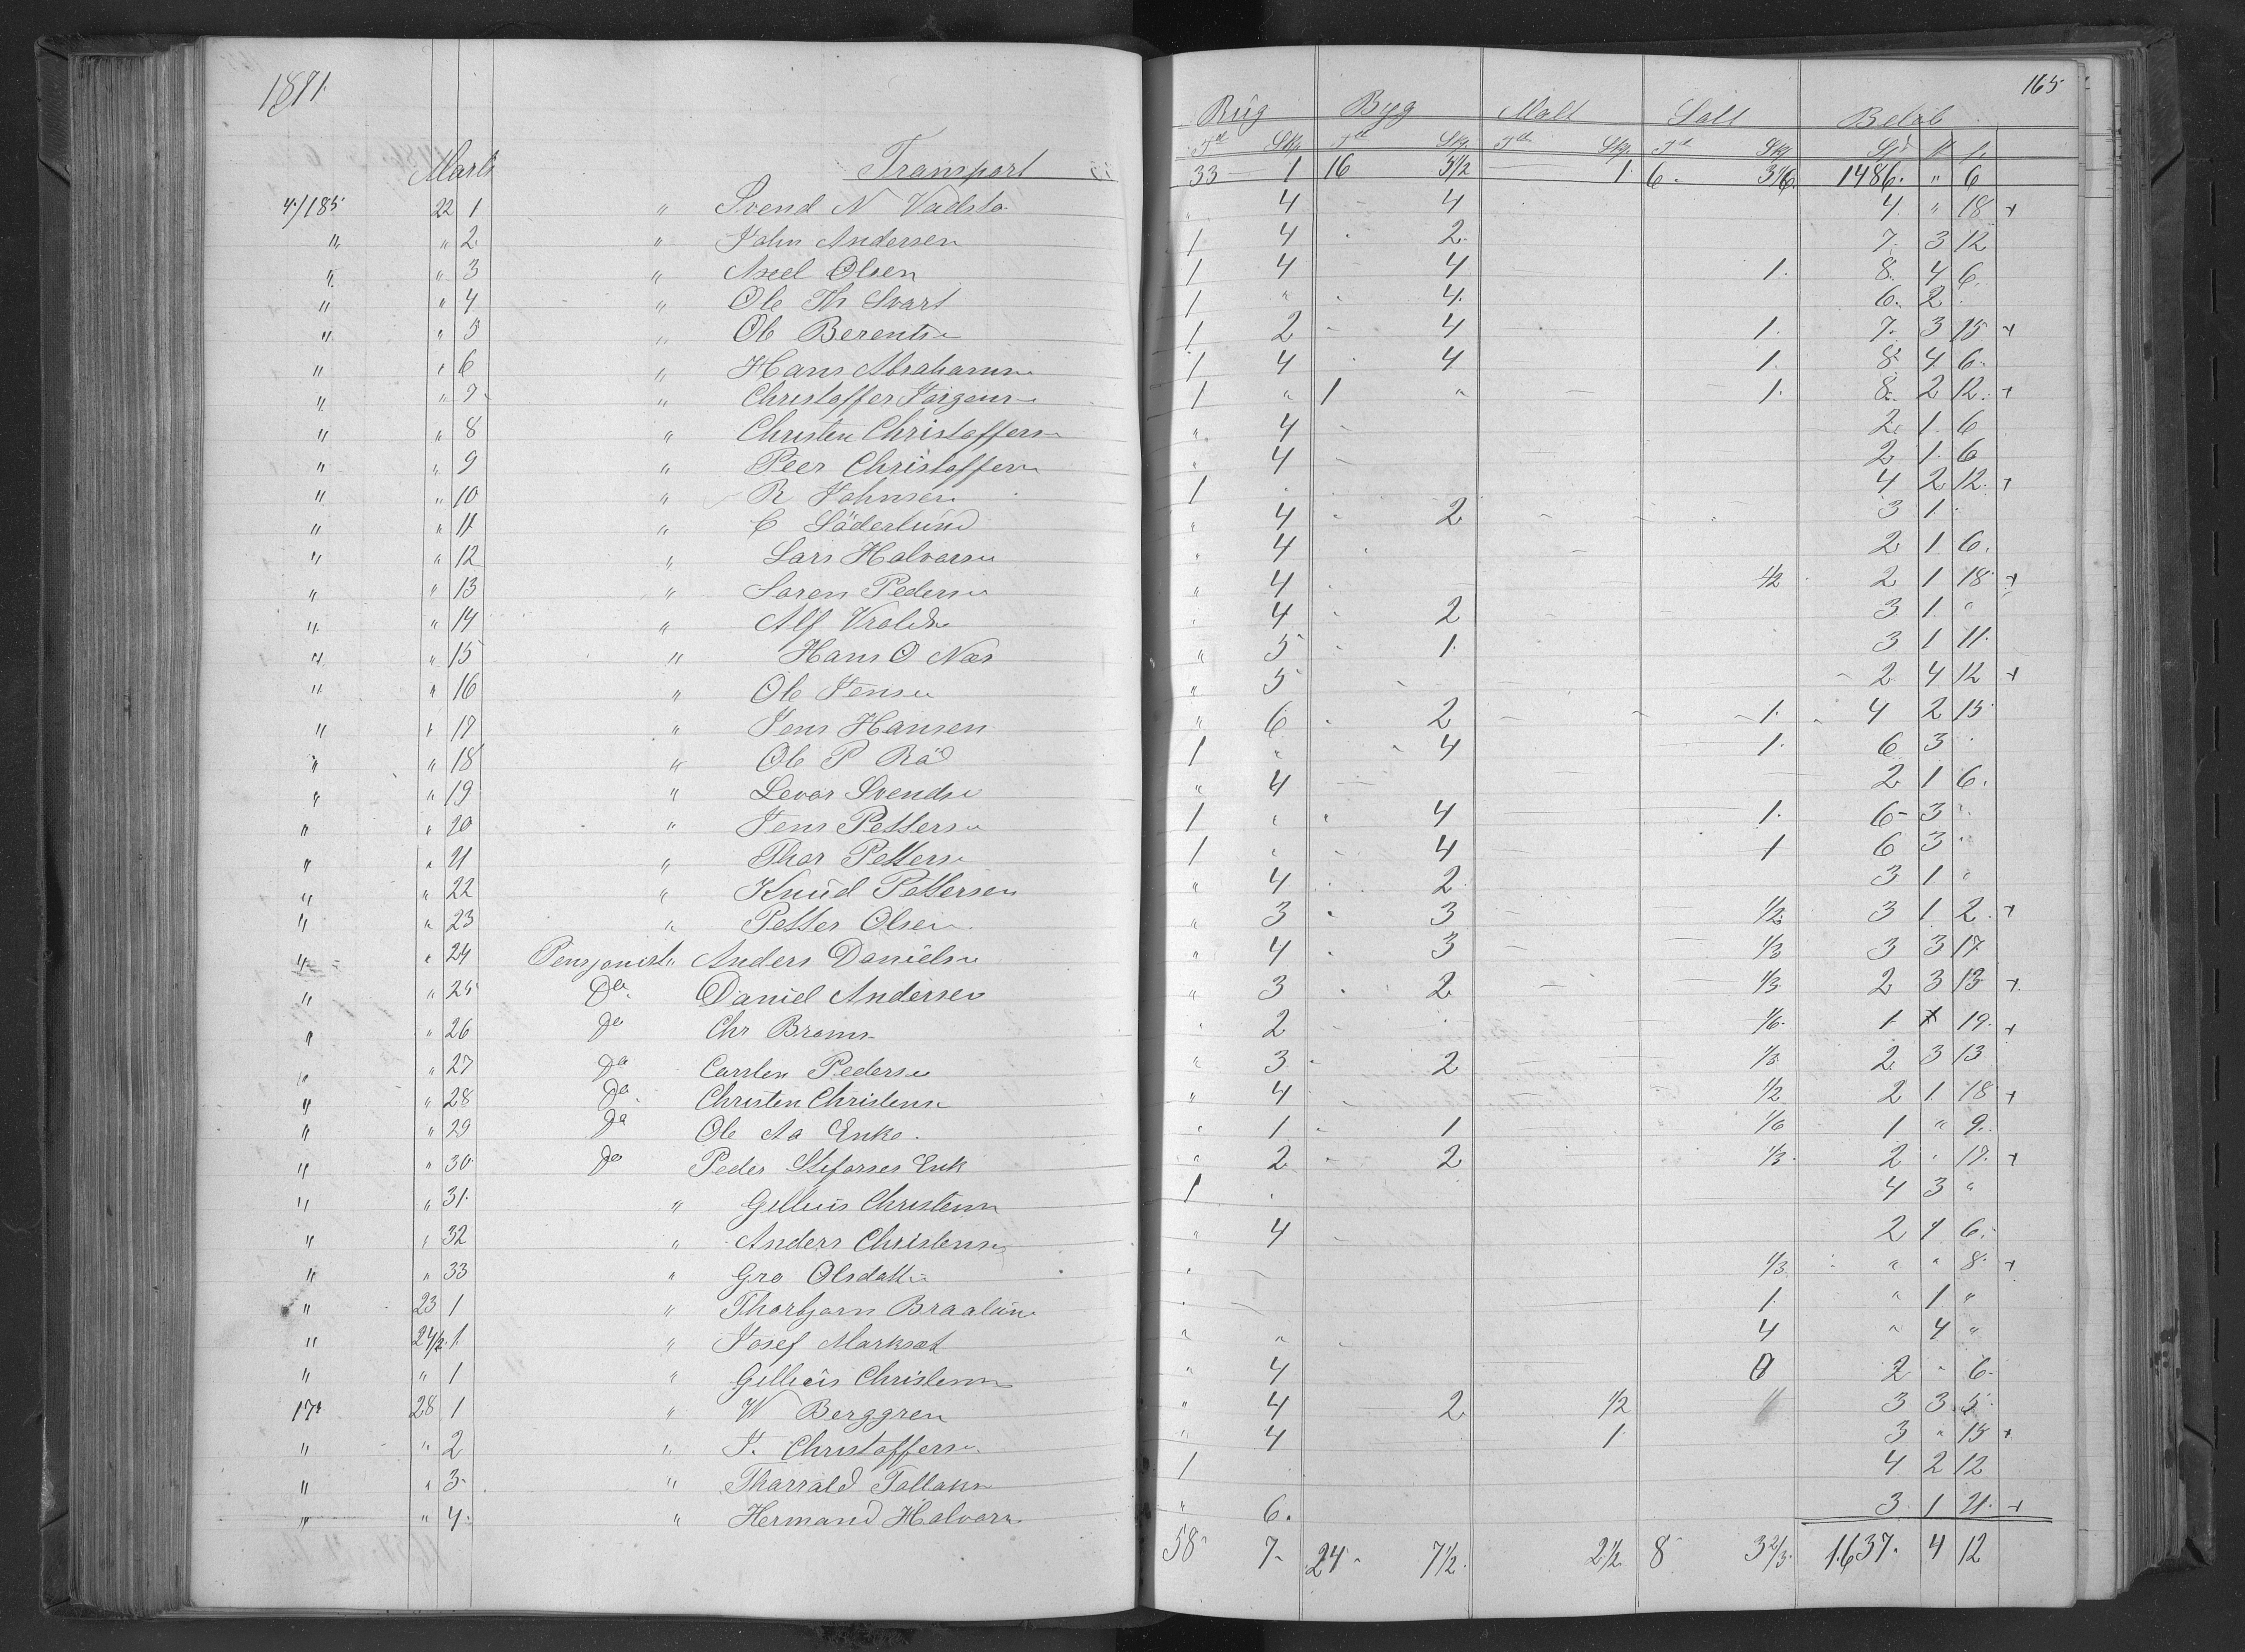 1871.
165
Rug Byg Malt Salt Beløb
Td Skp Td Skp Td Skp Td Skp Spd
Marts Transport 33 1 16 3 1/2 1 6. 1486. " 6
4/185 22 1 " Svend N Vadsta " 4 4 4. " 18 +
" " 2 " John Andersen 1 4 2. 7. 3 12
" " 3 " Axel Olsen 1 4 4 1. 8. 4 6.
" " 4 " Ole Th Svart 1 " 4. 6. 2
" " 5 " Ole Berentsen 1 2 4 1. 7. 3 15 +
" " 6 " Hans Abrahamsen 1 4 4 1. 8. 4 6.
" " 7 " Christoffer Jørgens 1 " 1 " 1. 8. 2 12. +
" " 8 " Christen Christoffers " 4 2. 1. 6
" " 9 " Peer Christoffers " 4 2 1. 6
" " 10 " R Johnsen 1 4 2 12. +
" " 11 " C Söderlund " 4 2 3 1.
" " 12 " Lars Halvorsen 4 2 1. 6.
" " 13 " Søren Pedersen " 4 1/2 2 1 18. +
" " 14 " Alf Vrolds 4 2 3 1. "
" " 15 " Hans O Næs " 5 1. 3 1 11.
" " 16 " Ole Jensen " 5 2 4 12 +
" " 17 " Jens Hansen " 6 2 1. 4 2 15
" " 18 " Ole P Röd 1 " 4 1. 6 3
" " 19 " Levor Svendsen " 4 2 1 6.
" " 20 " Jens Pettersen 1 4 1. 6 3 "
" " 21 " Thor Petters 1 4 1 6 3
" " 22 " Knud Pettersen " 4 2 3 1 "
" " 23 " Petter Olsen " 3 3 1/2 3 1 2. +
" " 24 Pensjonist Anders Danielsen " 4 3 1/3 3 3 17
" " 25 Do Daniel Andersen " 3 2 1/3 2 3 13 +
" " 26 Do Chr Broms " 2 1/6 1. 1 19. +
" " 27 Do Carsten Pedersen " 3 2 1/3 2 3 13
" " 28 Do Christen Christens " 4 1/2 2 1. 18 +
" " 29 Do Ole Aa Enke. " 1 1 1/6 1 " 9.
" " 30 Do Peder Enk " 2 2 1/3 2 " 17. +
" " 31. " Gellius Christens 1 4 3 "
" " 32 " Anders Christensen " 4 2 1 6.
" " 33 " Gro Olsdatter " 1/3 " " 8. +
" 23 1 " Thorbjørn 1 " 1 "
" 24/2 1 " Josef " " 4 " 4 "
" " 1 " Gellius Christens " 4 0 2 " 6.
17 28 1 " W Berggren " 4 2 1/2 " 3 3 5.
" " 2 " J. Christoffersen " 4 1 3 " 15 +
" " 3 " Tharrald Tallaks 1 4 2 12
" " 4. " Hermand Halvors " 6. 3. 1 21. +
58 7 24 7 1/2. 2 1/2 8 3 2/3. 1637. 4 12